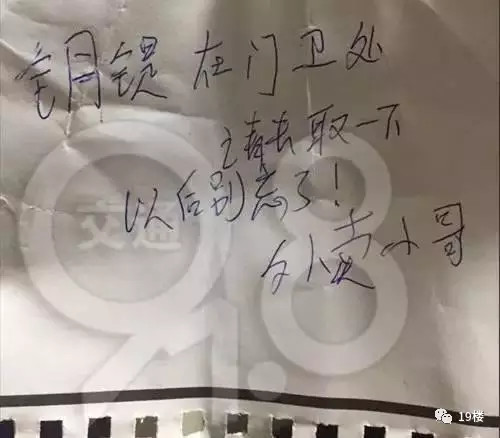 钥匙在门卫处
请去取一下
以后别忘了!
外卖小哥
交通
91.8
19楼